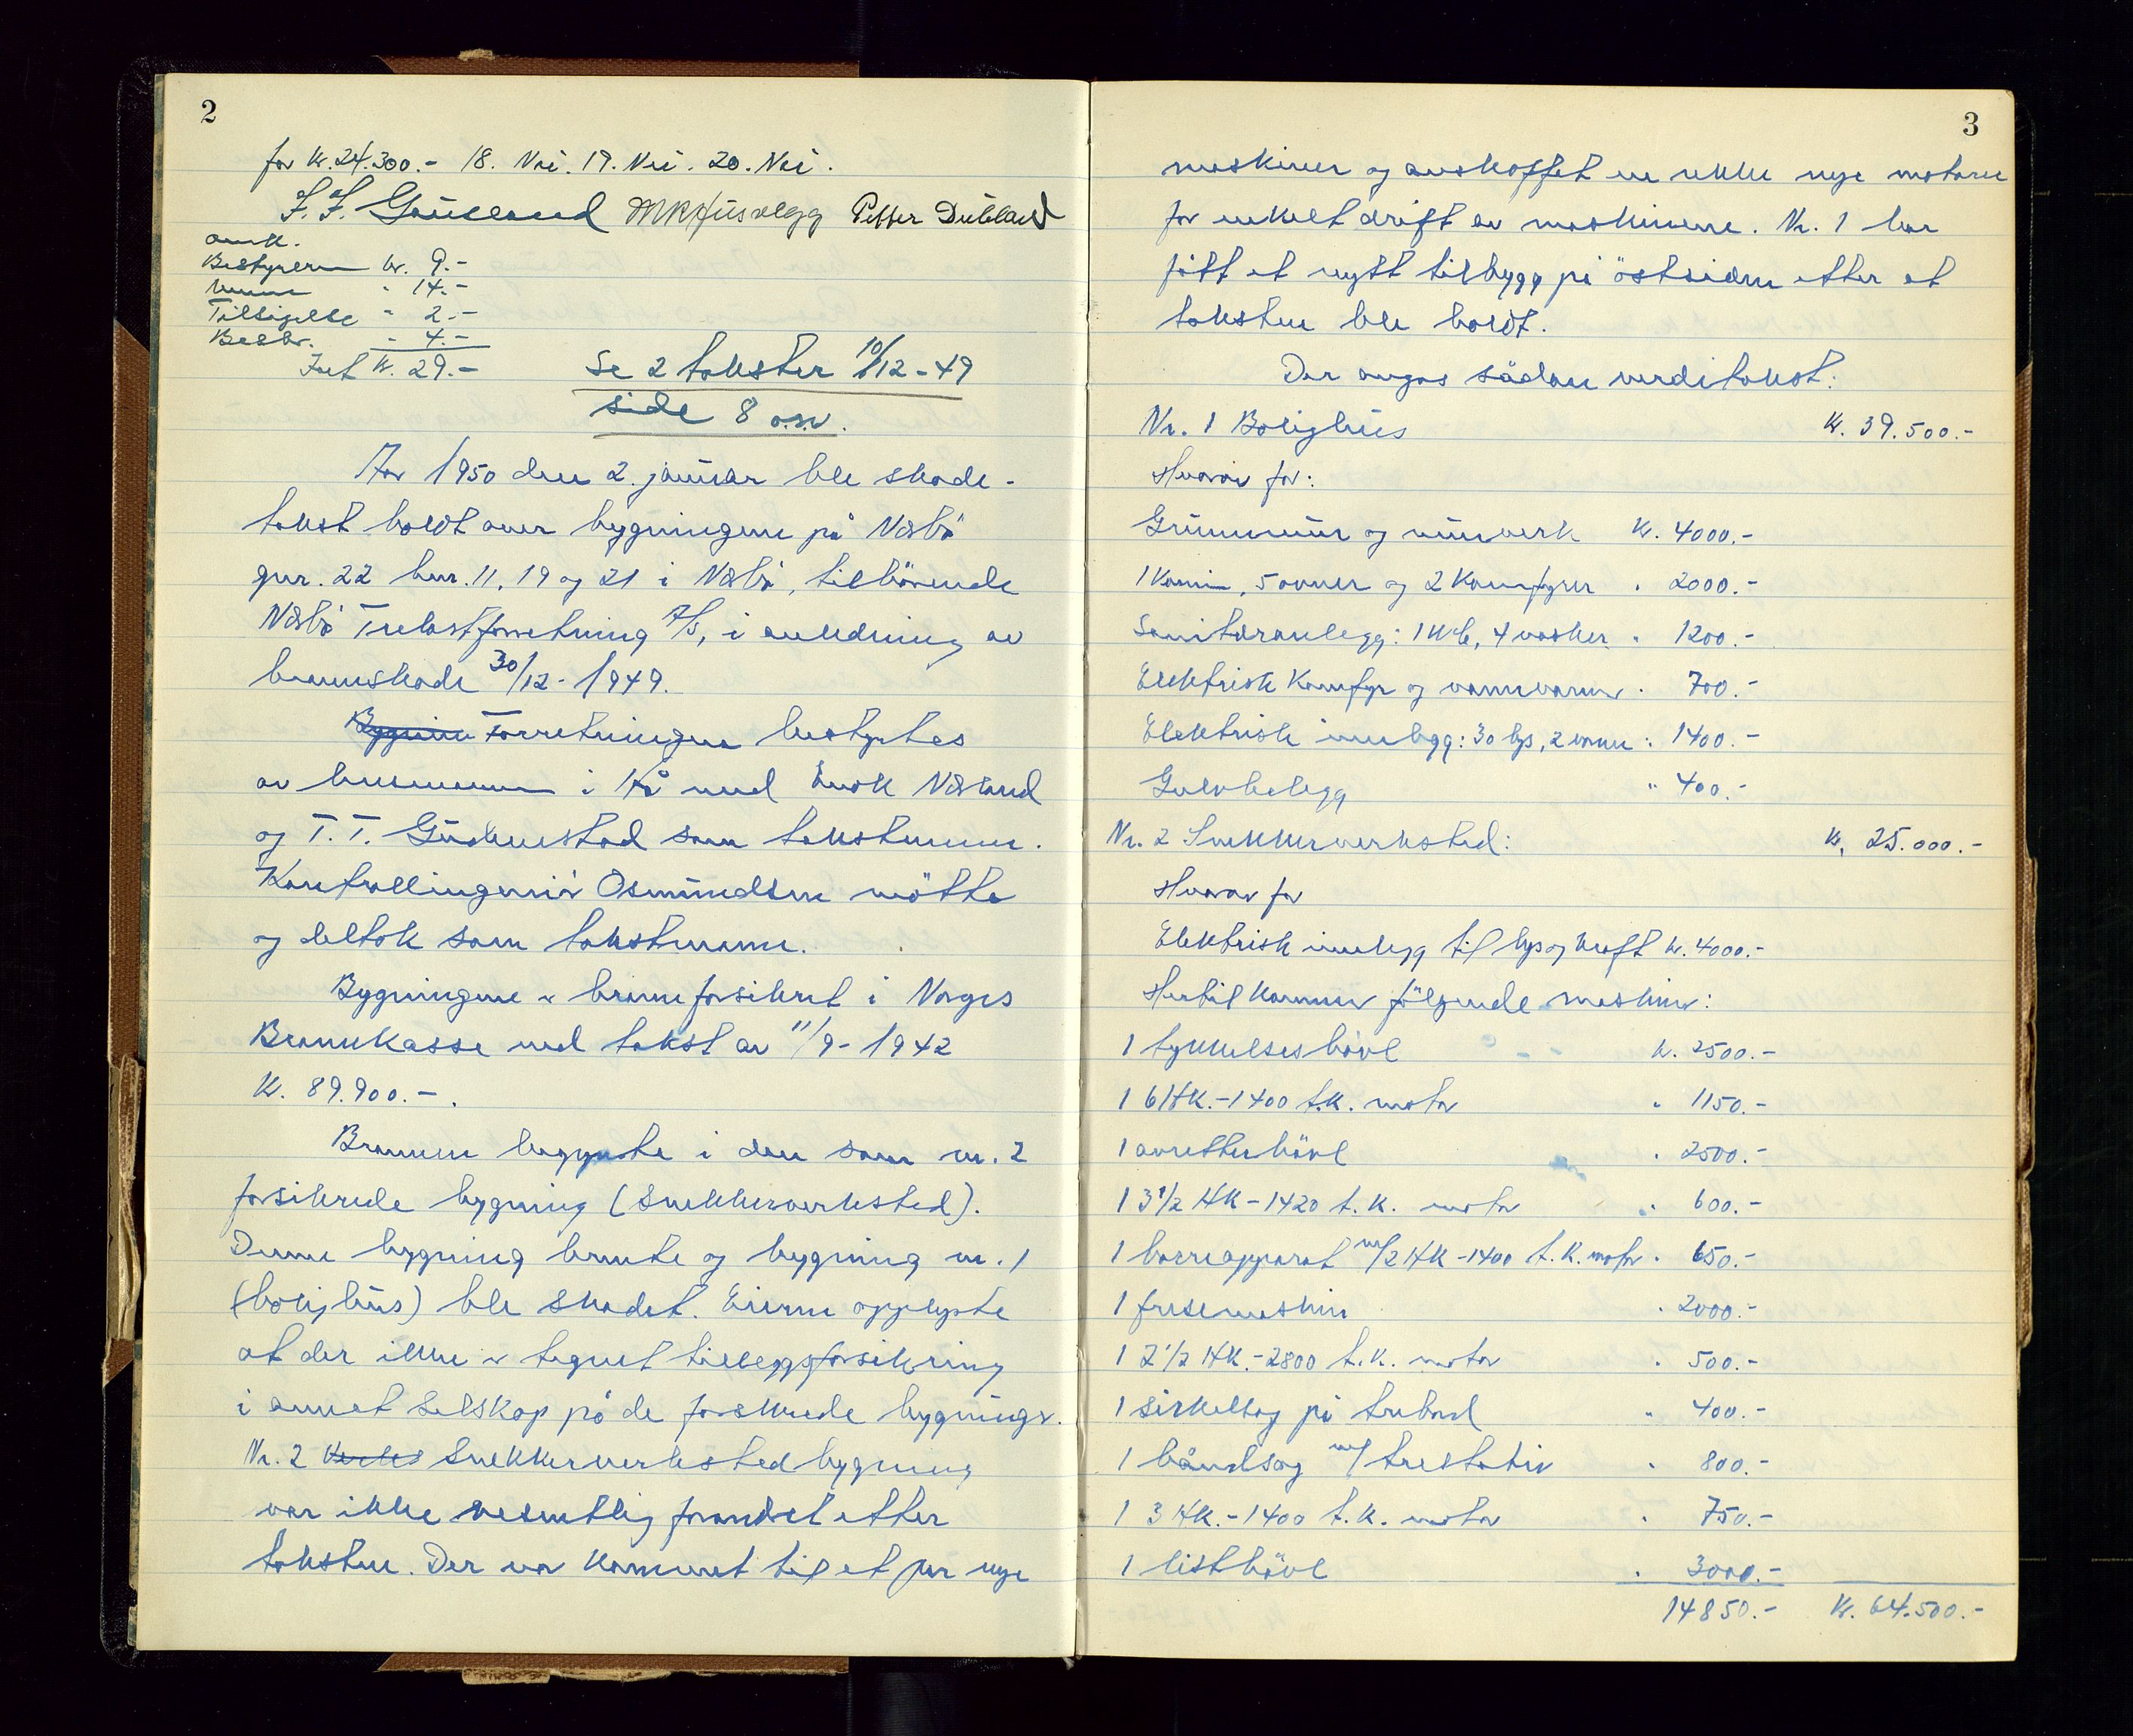 2
for kr. 24.300.- 18. Nei. 19. Nei. 20. Nei.
MKHusvegg Petter Dubland
omk.
Bestyreren kr. 9.-
Menn " 14.-
Tilsigelse " 2.-
Besbr. " 4.-
Ialt kr. 29.-
Se 2 takster 10/12-49
side 8 o.s.v.
År 1950 den 2. januar ble skade-
takst holdt over bygningene på Nærbö
gnr. 22 bnr. 11, 19 og 21 i Nærbö, tilhörende
Nærbö Trelastforretning A/S, i anledning av
brannskade 30/12-1949.
Bygnin Forretningen bestyrtes
av lensmannen i Hå med Enok Nærland
og T. T. Gudmestad som takstmenn.
Kontrollingeniör Osmundsen mötte
og deltok som takstmann.
Bygningene er brannforsikret i Norges
Brannkasse ved takst av 11/9-1942
kr. 89.900.-.
Brannen begynte i den som nr. 2
forsikrede bygning (snekkerverksted).
Denne bygning brente og bygning nr. 1
(bolighus) ble skadet. Eieren opplyste
at der ikke er tegnet tilleggsforsikring
i annet selskap på de forsikrede bygninger.
Nr. 2 Snekkerverksted bygning
var ikke vesentlig forandret etter
taksten. Der var kommet til et par nye
3
maskiner og anskaffet en rekke nye motorer
for enkelt drift av maskinene. Nr. 1 har
fått et nytt tilbygg på östsiden etter at
taksten ble holdt.
Der avgas sådan verditakst:
Nr. 1 Bolighus kr. 39.500.-
Hvorav for:
Grunnmur og murverk kr. 4000.-
1 Kamin, 5 ovner og 2 Komfyrer " 2000.-
Sanitæranlegg: 1 Wc, 4 vasker " 1200.-
Elektrisk Komfyr og vannvarmer " 700.-
Elektrisk innlegg: 30 lys, 2 varme " 1400.-
Gulvbelegg " 400.-
Nr. 2 Snekkerverksted: kr. 25.000.-
Hvorav for
Elektrisk innlegg til lys og kraft kr. 4000.-
Hertil kommer fölgende maskiner:
1 tykkelseshövl kr. 2500.-
1 6 HK.-1400 t.k. motor " 1150.-
1 avretterhövl " 2500.-
1 3 1/2 HK-1420 t.k. motor " 600.-
1 borreapparat m/2 HK-1400 t.k. motor " 650.-
1 fresemaskin " 2000.-
1 2 1/2 HK.-2800 t.k. motor " 500.-
1 sirkelsag på trebord " 400.-
1 båndsag m/ trestativ " 800.-
1 3 HK.-1400 t.k. motor " 750.-
1 listhövl " 3000.-
14850.- kr. 64.500.-